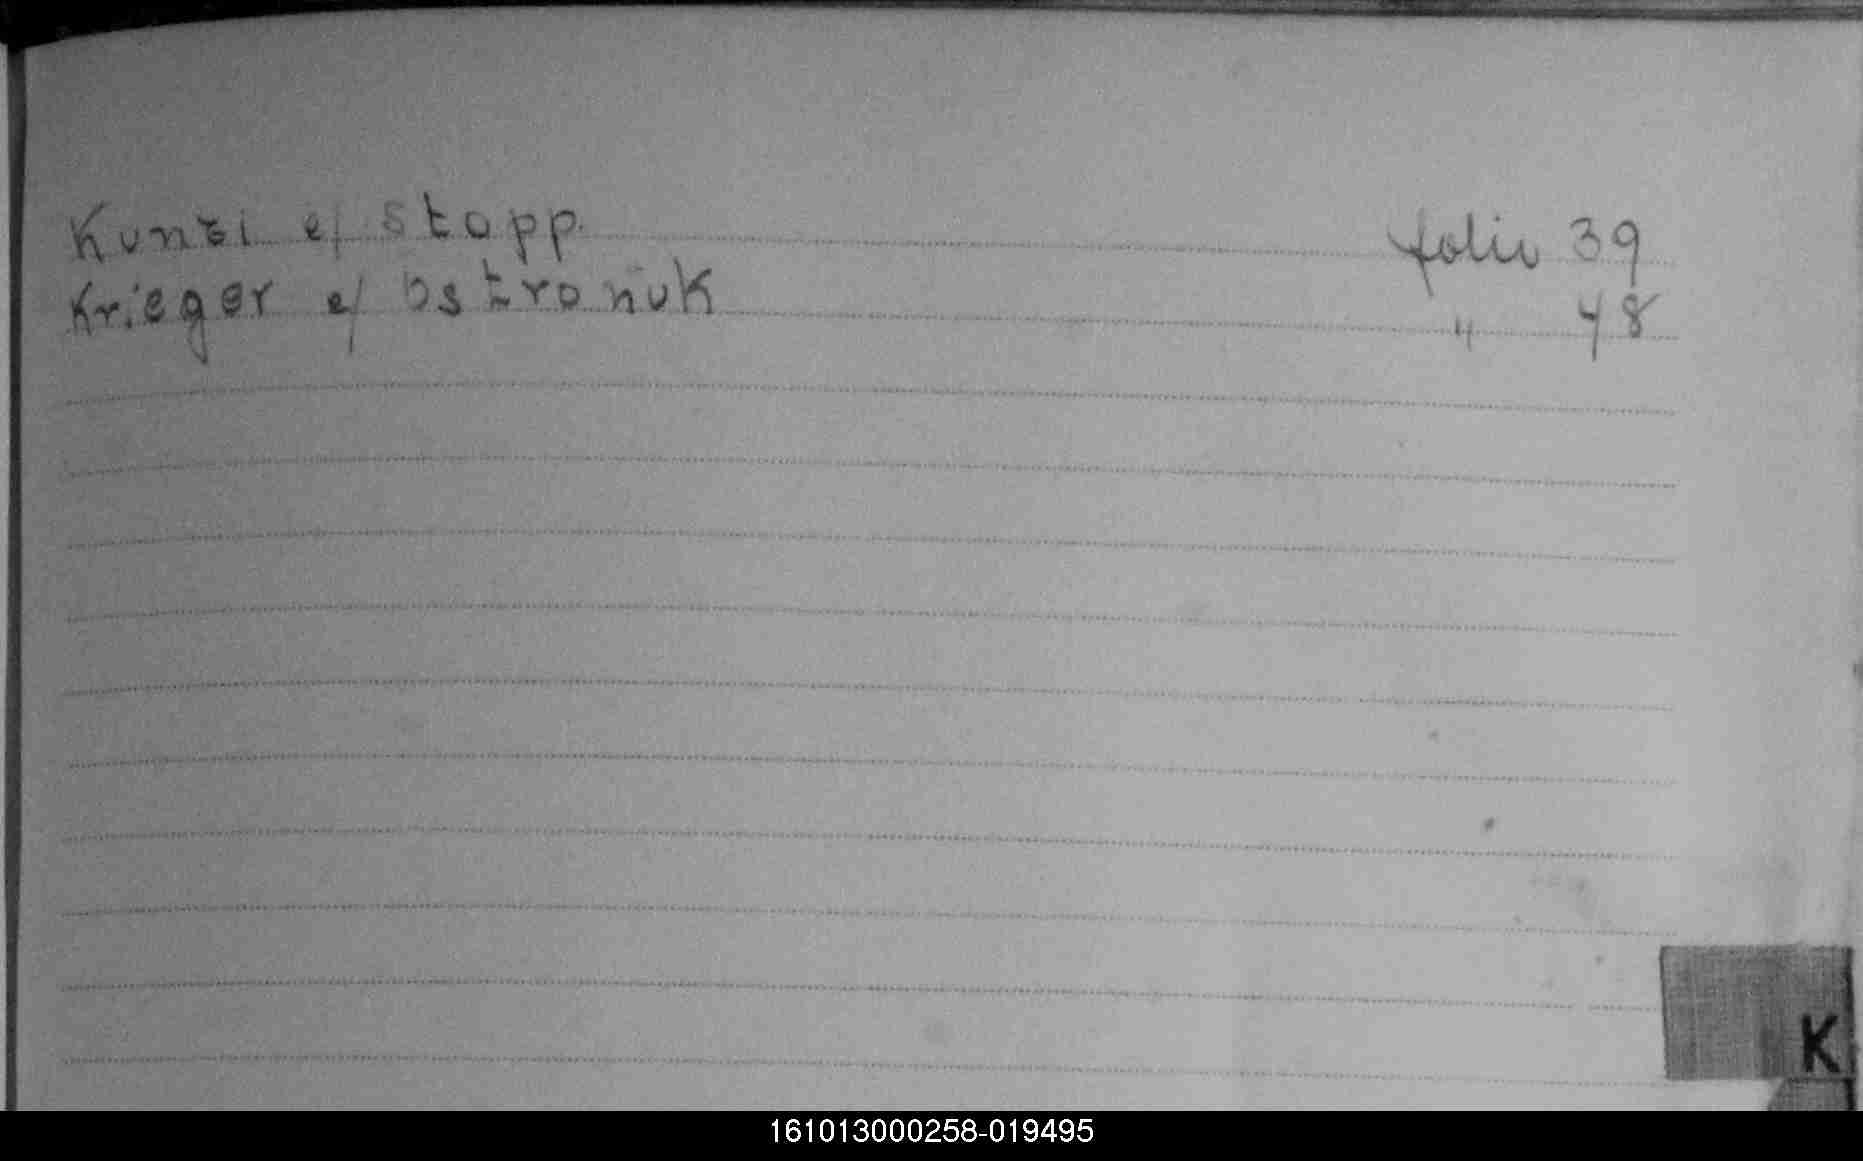 Kunzi e/ Stopp. folio 39
Krieger e/ Ostronuk " 48
K
161013000258-019495